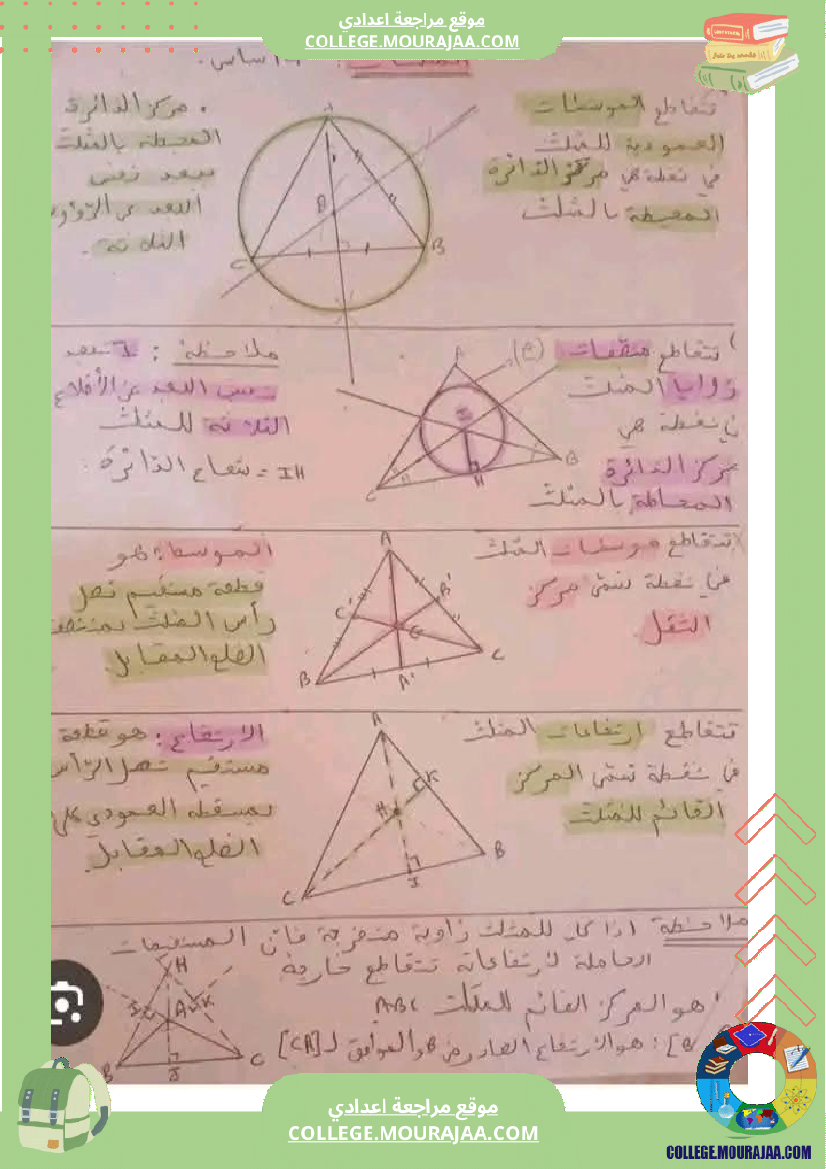 موقع مراجعة اعدادي
COLLEGE.MOURAJAA.COM
تتقاطع الموسطات
العمودية للمثلث
في نقطة هي مركز الدائرة
المحيطة بالمثلث
. مركز الدائرة
المحيطة بالمثلث
يبعد نفس
البعد عن الرؤوس
الثلاثة .
A
B
C
تتقاطع منصفات
زوايا المثلث
في نقطة هي
مركز الدائرة
المحاطة بالمثلث
ملاحظة : I تبعد
نفس البعد عن الأضلاع
الثلاثة للمثلث
IH = شعاع الدائرة
A
I
B
H
C
تتقاطع موسطات المثلث
في نقطة تسمى مركز
الثقل
الموسط : هو
قطعة مستقيم تصل
رأس المثلث بمنتصف
الضلع المقابل
A
B'
C'
G
C
B
A'
تتقاطع ارتفاعات المثلث
في نقطة تسمى المركز
القائم للمثلث
الارتفاع : هو قطعة
مستقيم تصل الرأس
بمسقطه العمودي على
الضلع المقابل
A
K
H
B
J
C
ملاحظة اذا كان للمثلث زاوية منفرجة فان المستقيمات
الحاملة لارتفاعاته تتقاطع خارجه
هو المركز القائم للمثلث ABC
هو الارتفاع الصادر من B والموافق لـ [CA]
H
A
K
B
J
C
موقع مراجعة اعدادي
COLLEGE.MOURAJAA.COM
COLLEGE.MOURAJAA.COM